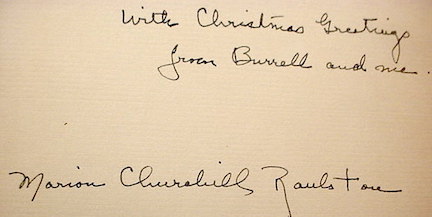 With Christmas Greetings
from Burrell and me.
Marion Churchill Raulston